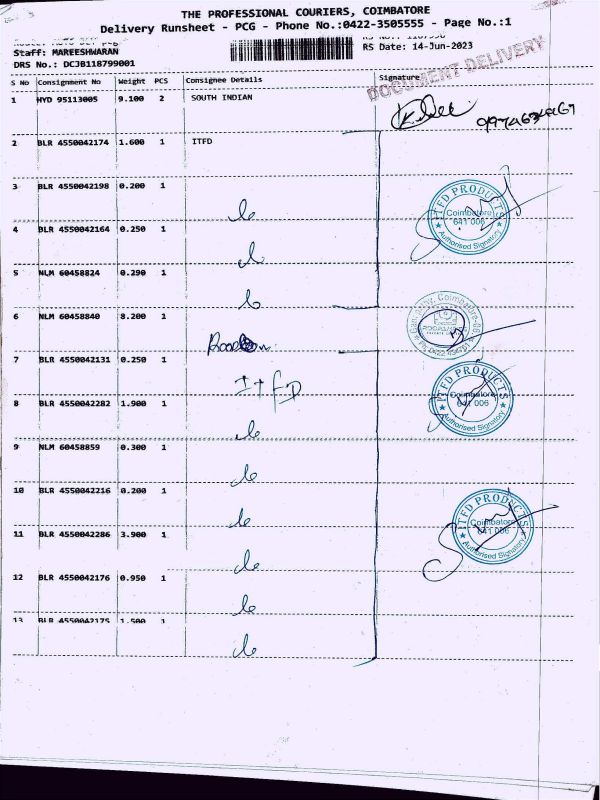 THE PROFESSIONAL COURIERS, COIMBATORE
Delivery Runsheet - PCG - Phone No.:0422-3505555 - Page No.:1
Staff: MAREESHWARAN
RS Date: 14-Jun-2023
DRS No.: DCJB118799001
DOCUMENT DELIVERY
S No Consignment No Weight PCS Consignee Details Signature
1 HYD 95113005 9.100 2 SOUTH INDIAN
2 BLR 4550042174 1.600 1 ITFD
3 BLR 4550042198 0.200 1
ITFD PRODUCTS
Coimbatore
641 006
Authorised Signatory
4 BLR 4550042164 0.250 1
5 NLM 60458824 0.290 1
6 NLM 60458840 8.200 1
Coimbatore
7 BLR 4550042131 0.250 1
ITFD
ITFD PRODUCTS
Coimbatore
641 006
Authorised Signatory
8 BLR 4550042282 1.900 1
9 NLM 60458859 0.300 1
10 BLR 4550042216 0.200 1
ITFD PRODUCTS
Coimbatore
641 006
Authorised Signatory
11 BLR 4550042286 3.900 1
12 BLR 4550042176 0.950 1
13 BLR 4550042175 1.500 1